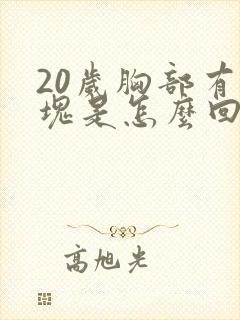 20歲胸部有
塊是怎麼回
高旭光